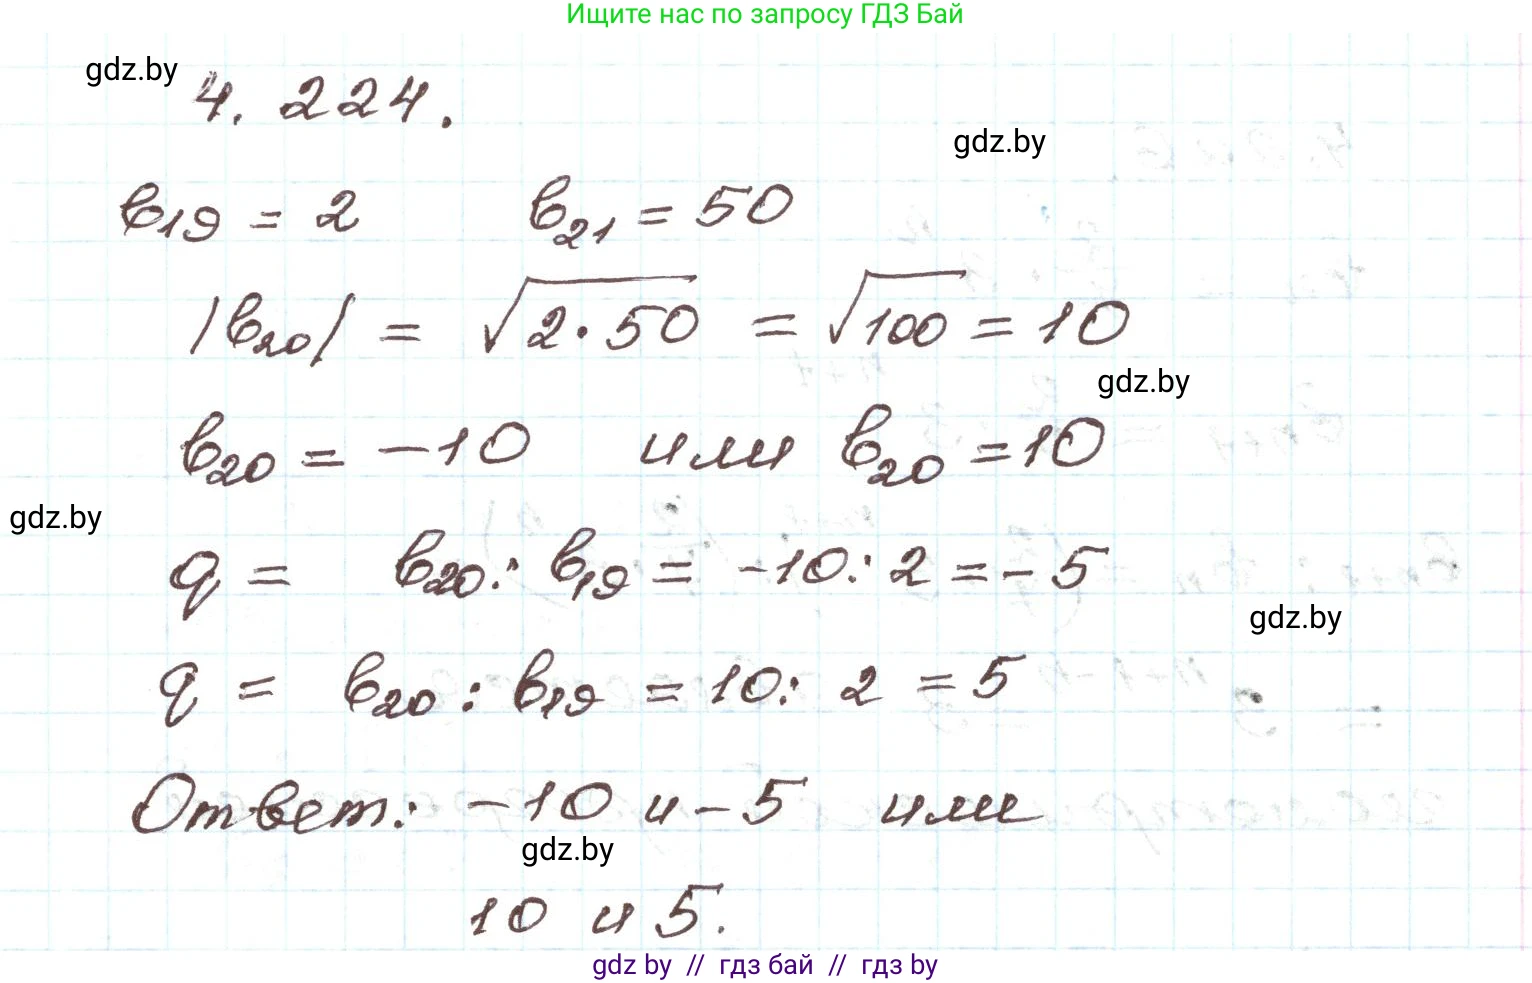 Ищите нас по запросу ГДЗ Бай
gdz.by
4. 224.
gdz.by
b19 = 2 b21 = 50
|b20| = √2·50 = √100 = 10
gdz.by
b20 = -10 или b20 = 10
gdz.by
q = b20 : b19 = -10 : 2 = -5
gdz.by
q = b20 : b19 = 10 : 2 = 5
Ответ: -10 и -5 или
gdz.by
10 и 5.
gdz by // гдз бай // гдз by